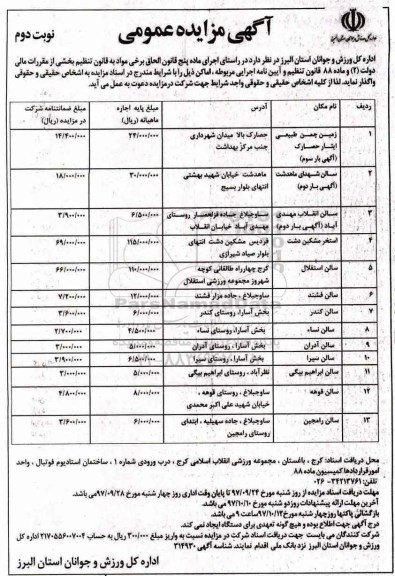 آگهی مزایده عمومی
نوبت دوم
اداره کل ورزش و جوانان استان البرز در نظر دارد در راستای اجرای ماده پنج قانون الحاق برخی مواد به قانون تنظیم بخشی از مقررات مالی
دولت (۲) و ماده ۸۸ قانون تنظیم و آیین نامه اجرایی مربوطه ، اماکن ذیل را با شرایط مندرج در اسناد مزایده به اشخاص حقیقی و حقوقی
واگذار نماید. لذا از کلیه اشخاص حقیقی و حقوقی واجد شرایط جهت شرکت در مزایده دعوت به عمل می آید.
ردیف نام مکان آدرس مبلغ پایه اجاره ماهیانه (ریال) مبلغ ضمانتنامه شرکت در مزایده (ریال)
۱ زمین چمن طبیعی ایثار حصارک (آگهی بار سوم) حصارک بالا میدان شهرداری جنب مرکز بهداشت ۲۴/۰۰۰/۰۰۰ ۱۴/۴۰۰/۰۰۰
۲ سالن شهدای ماهدشت (آگهی بار دوم) ماهدشت خیابان شهید بهشتی انتهای بلوار بسیج ۳۰/۰۰۰/۰۰۰ ۱۸/۰۰۰/۰۰۰
۳ سالن انقلاب مهدی آباد (آگهی بار دوم) ساوجبلاغ جاده قزلحصار روستای مهدی آباد خیابان انقلاب ۶/۵۰۰/۰۰۰ ۳/۹۰۰/۰۰۰
۴ استخر مشکین دشت فردیس مشکین دشت انتهای بلوار صیاد شیرازی ۱۱۵/۰۰۰/۰۰۰ ۶۹/۰۰۰/۰۰۰
۵ سالن استقلال کرج چهارراه طالقانی کوچه شهروز مجموعه ورزشی استقلال ۱۱۰/۰۰۰/۰۰۰ ۶۶/۰۰۰/۰۰۰
۶ سالن فشند ساوجبلاغ ، جاده مزار فشند ۱۲/۰۰۰/۰۰۰ ۷/۲۰۰/۰۰۰
۷ سالن کندر بخش آسارا، روستای کندر ۶/۰۰۰/۰۰۰ ۳/۶۰۰/۰۰۰
۸ سالن نساء بخش آسارا، روستای نساء ۴/۵۰۰/۰۰۰ ۲/۷۰۰/۰۰۰
۹ سالن آدران بخش آسارا، روستای آدران ۵/۰۰۰/۰۰۰ ۳/۰۰۰/۰۰۰
۱۰ سالن سیرا بخش آسارا ، روستای سیرا ۶/۵۰۰/۰۰۰ ۳/۹۰۰/۰۰۰
۱۱ سالن ابراهیم بیگی نظرآباد ، روستای ابراهیم بیگی ۵/۰۰۰/۰۰۰ ۳/۰۰۰/۰۰۰
۱۲ سالن قوهه ساوجبلاغ ، روستای قوهه ، خیابان شهید علی اکبر محمدی ۸/۰۰۰/۰۰۰ ۴/۸۰۰/۰۰۰
۱۳ سالن رامجین ساوجبلاغ ، جاده سهیلیه ، ابتدای روستای رامجین ۶/۰۰۰/۰۰۰ ۳/۶۰۰/۰۰۰
محل دریافت اسناد: کرج ، باغستان ، مجموعه ورزشی انقلاب اسلامی کرج ، درب ورودی شماره ۱ ، ساختمان استادیوم فوتبال ، واحد
امور قراردادها کمیسیون ماده ۸۸
تلفن: ۳۴۲۱۳۷۶۱-۰۲۶
مهلت دریافت اسناد مزایده از روز شنبه مورخ ۹۷/۰۹/۲۴ تا پایان وقت اداری روز چهار شنبه مورخ ۹۷/۰۹/۲۸ می باشد.
آخرین مهلت ارائه پیشنهادات روز دو شنبه مورخ ۹۷/۱۰/۱۰
بازگشائی پاکتها روز چهار شنبه مورخ ۹۷/۱۰/۱۲ ساعت ۹ می باشد.
درج آگهی جهت اطلاع بوده و هیچ گونه تعهدی برای دستگاه ایجاد نمی کند.
شرکت کنندگان می بایست جهت دریافت اسناد شرکت در مزایده نسبت به واریز مبلغ ۳۰۰/۰۰۰ ریال به حساب ۲۱۷۰۵۵۶۰۰۷۰۰۴ اداره کل
ورزش و جوانان استان البرز نزد بانک ملی اقدام نمایند. شناسه آگهی ۳۱۴۹۳۰
اداره کل ورزش و جوانان استان البرز